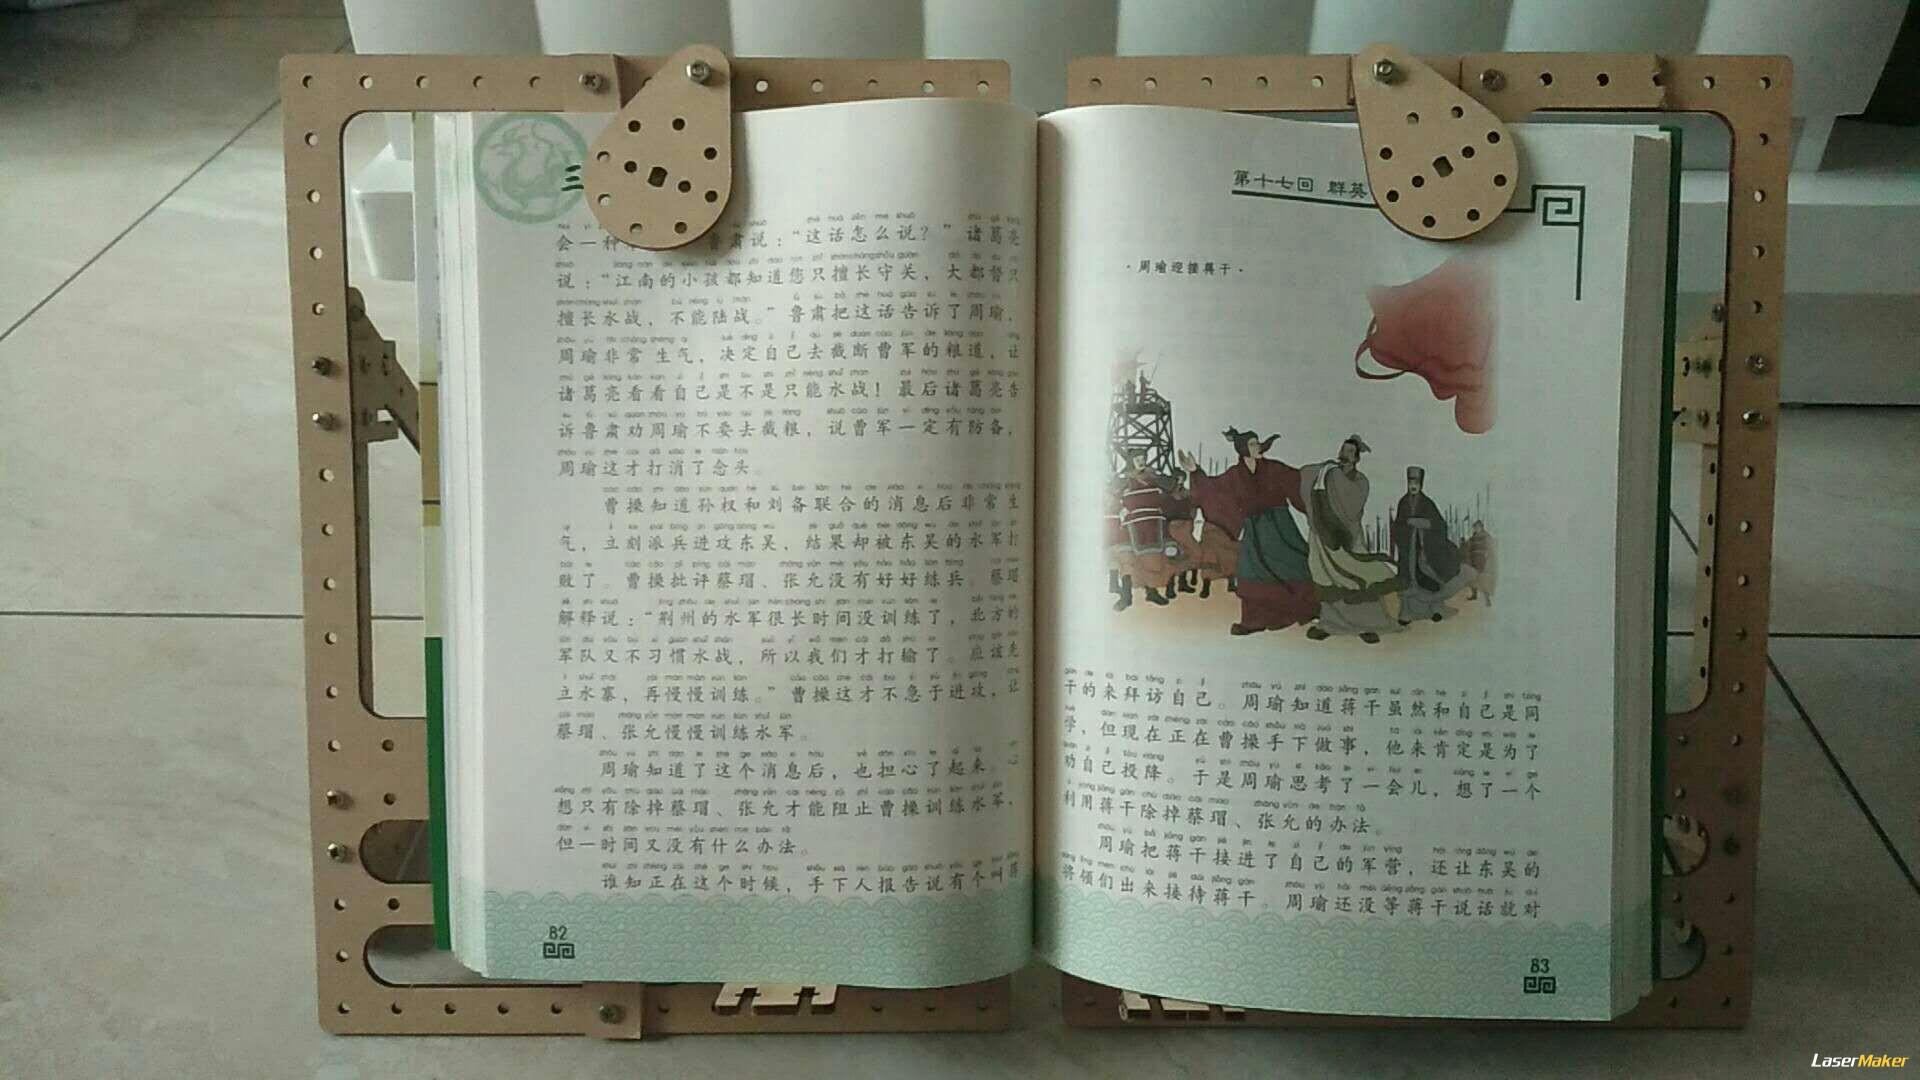 三
会一种
鲁肃说：“这话怎么说？”诸葛亮
说：“江南的小孩都知道您只擅长守关，大都督只
擅长水战，不能陆战。”鲁肃把这话告诉了周瑜，
周瑜非常生气，决定自己去截断曹军的粮道，让
诸葛亮看看自己是不是只能水战！最后诸葛亮告
诉鲁肃劝周瑜不要去截粮，说曹军一定有防备，
周瑜这才打消了念头。
曹操知道孙权和刘备联合的消息后非常生
气，立刻派兵进攻东吴，结果却被东吴的水军打
败了。曹操批评蔡瑁、张允没有好好练兵。蔡瑁
解释说：“荆州的水军很长时间没训练了，北方的
军队又不习惯水战，所以我们才打输了。应该先
立水寨，再慢慢训练。”曹操这才不急于进攻，让
蔡瑁、张允慢慢训练水军。
周瑜知道了这个消息后，也担心了起来。心
想只有除掉蔡瑁、张允才能阻止曹操训练水军，
但一时间又没有什么办法。
谁知正在这个时候，手下人报告说有个叫蒋
82
第十七回 群英
·周瑜迎接蒋干·
干的来拜访自己。周瑜知道蒋干虽然和自己是同
学，但现在正在曹操手下做事，他来肯定是为了
劝自己投降。于是周瑜思考了一会儿，想了一个
利用蒋干除掉蔡瑁、张允的办法。
周瑜把蒋干接进了自己的军营，还让东吴的
将领们出来接待蒋干。周瑜还没等蒋干说话就对
83
LaserMaker